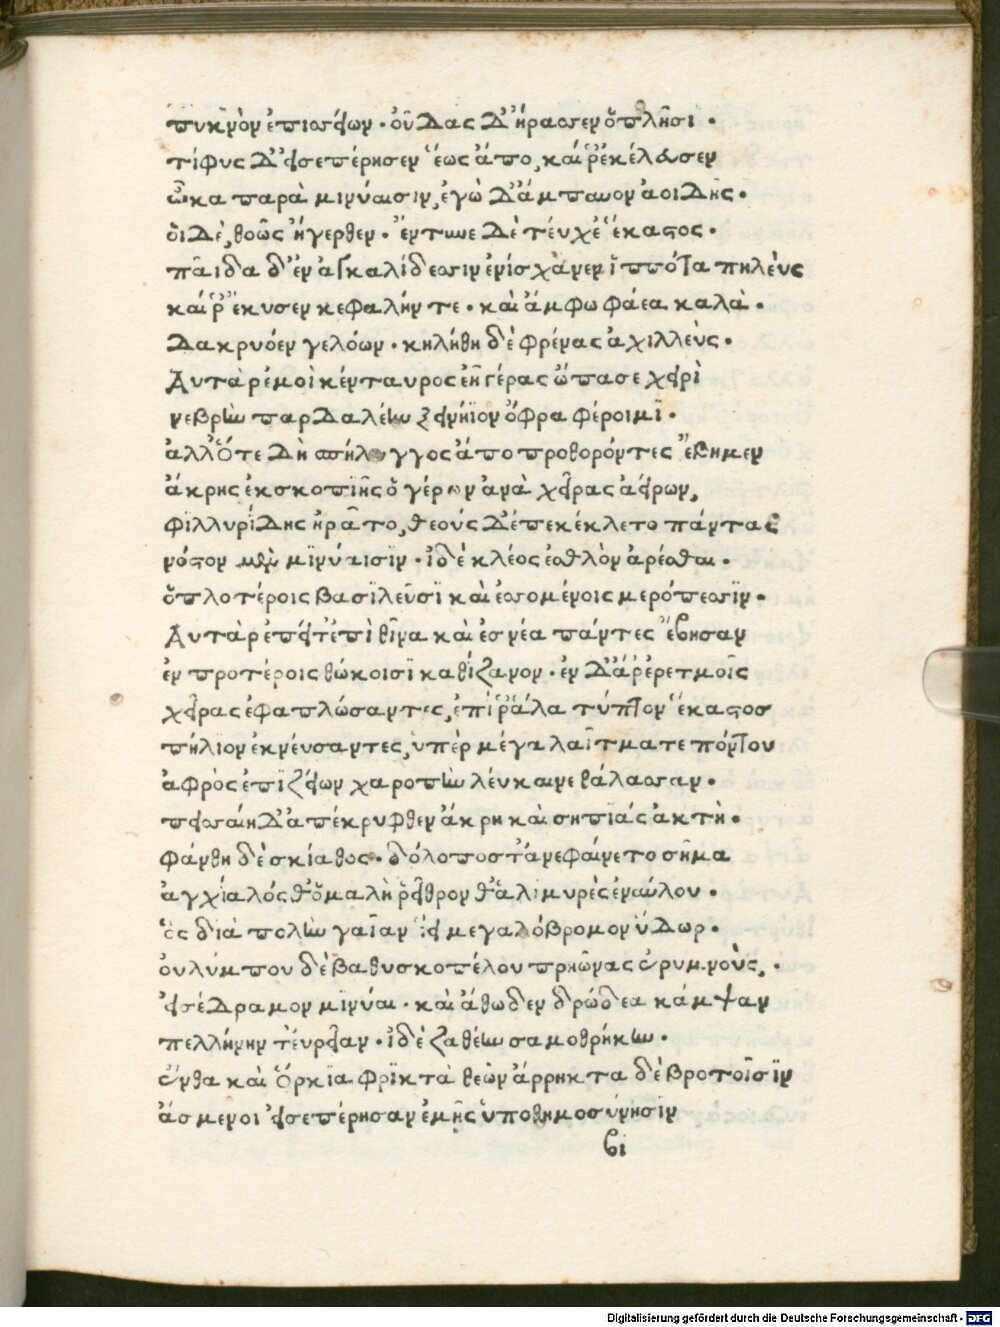 πυκνὸν ἐπισσείων · οὖδας δ' ἤρασσεν ὁπλῆσι ·
τίφυς δ' εἰσεπέρησεν ἕως ἄπο, καί ῥ' ἐκέλευσεν
ὦκα παρὰ μινύαισιν, ἐγὼ δ' ἄμπαυον ἀοιδῆς ·
οἱ δὲ, θοῶς ἤγερθεν · ἔντυνε δὲ τέυχε' ἕκαστος ·
παῖδα δ' ἐν ἀγκαλίδεσσιν ἐνίσχανεν ἱππότα πηλεὺς
καί ῥ' ἔκυσεν κεφαλήν τε · καὶ ἄμφω φάεα καλὰ ·
δακρυόεν γελόων · κηλήθη δὲ φρένας ἀχιλλεὺς ·
Αυτὰρ ἐμοὶ κένταυρος ἑῇ γέρας ὤπασε χειρὶ
νεβρὴν παρδαλέην ξεινήϊον ὄφρα φέροιμϊ ·
ἀλλ' ὅτε δὴ σπήλυγγος ἄπο προθορόντες ἔβημεν
ἄκρης ἐκ σκοπϊῆς ὁ γέρων ἀνὰ χεῖρας ἀείρων,
φϊλλυρίδης ἠρᾶτο, θεοὺς δ' ἐπεκέκλετο πάντας
νόστον μὲν μϊνύαισϊν · ἰδὲ κλέος ἐσθλὸν ἀρέσθαι ·
ὁπλοτέροις βασϊλεῦσϊ καὶ ἐσσομένοις μερόπεσσϊν ·
Αυτὰρ ἐπεί τ' ἐπὶ θῖνα καὶ ἐς νέα πάντες ἔβησαν
ἐν προτέροις θώκοισϊ καθίζανον · ἐν δ' ἄρ' ἐρετμοῖς
χεῖρας ἐφαπλώσαντες, ἐπίῤῥαλα τύπτον ἕκαστος
πήλιον ἐκνέυσαντες, ὑπὲρ μέγα λαῖτμα τε πόντου
ἀφρὸς ἐπϊζείων χαροπὴν λέυκαινε θάλασσαν ·
πεισσαίη δ' ἀπέκρυφθεν ἄκρη καὶ σηπιὰς ἀκτὴ ·
φάνθη δὲ σκίαθος · δόλοπος τ' ἀνεφαίνετο σῆμα
ἀγχίαλός θ' ὁμαλὴ ῥεῖθρον θ' ἁλιμυρὲς ἐναύλου ·
ὃς διὰ πολὴν γαῖαν ἵει μεγαλόβρομον ὕδωρ ·
ὀυλύμπου δὲ βαθυσκοπέλου πρηῶνας ἐρυμνοὺς, ·
εἰσέδραμον μϊνύαι · καὶ ἄθω δενδρώδεα κάμψαν
πελλήνην τ' ἐυρεῖαν · ἰδὲ ζαθέην σαμοθρήκην ·
ἔνθα καὶ ὅρκϊα φρϊκτὰ θεῶν ἄρρηκτα δὲ βροτοῖσϊν
ἄσμενοι εἰσεπέρησαν ἐμῇς ὑποθημοσύνησϊν
βi
Digitalisierung gefördert durch die Deutsche Forschungsgemeinschaft - DFG